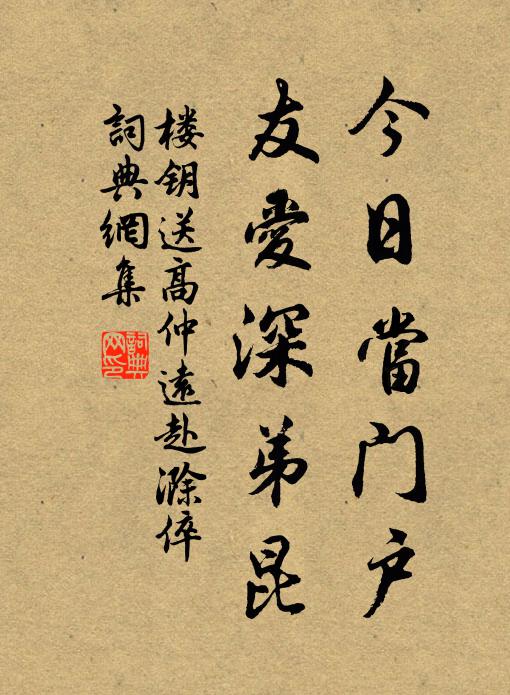 今日當门户
友愛深弟昆
楼钥送高仲遠赴滁倅
詞典網集
詞典网印